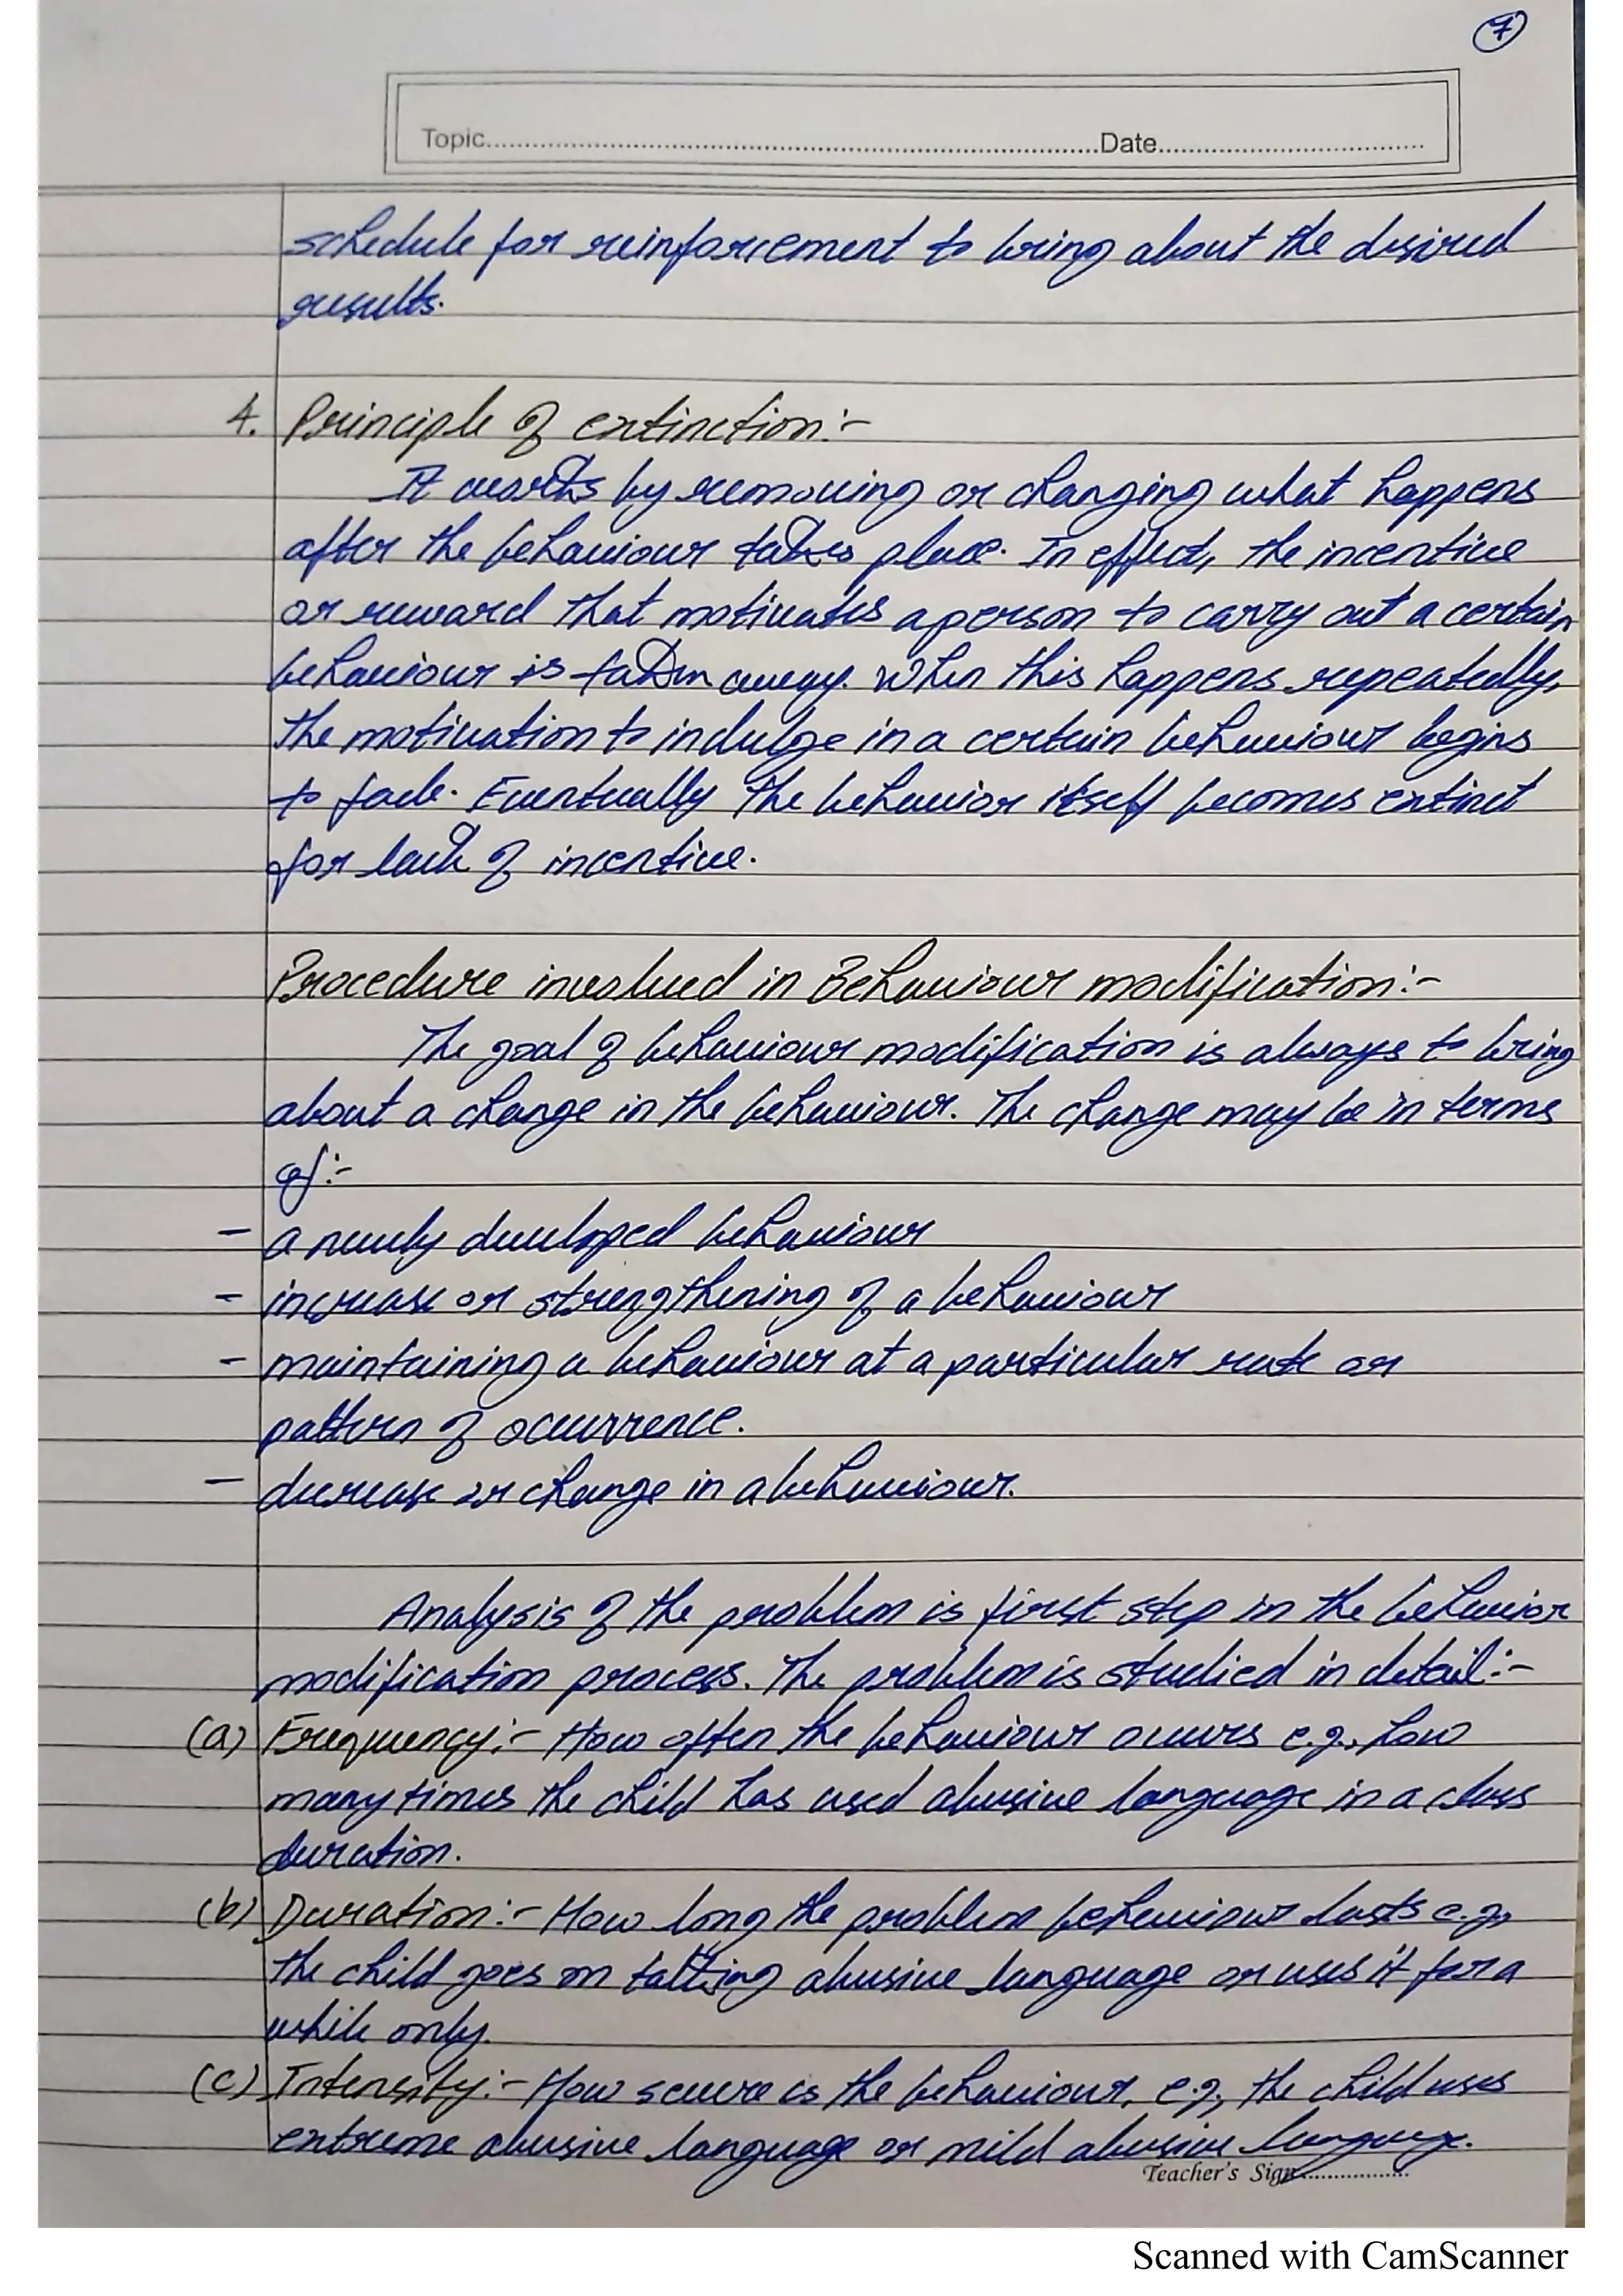 7
Topic..........Date..........
schedule for reinforcement to bring about the desired
results.
4. Principle of extinction:-
It works by removing or changing what happens
after the behaviour takes place. In effect, the incentive
or reward that motivates a person to carry out a certain
behaviour is taken away. When this happens repeatedly,
the motivation to indulge in a certain behaviour begins
to fade. Eventually the behavior itself becomes extinct
for lack of incentive.
Procedure involved in Behaviour modification:-
The goal of behaviour modification is always to bring
about a change in the behaviour. The change may be in terms
of:-
- a newly developed behaviour
- increase or strengthening of a behaviour
- maintaining a behaviour at a particular rate or
pattern of ocurrence.
- decrease or change in a behaviour.
Analysis of the problem is first step in the behavior
modification process. The problem is studied in detail:-
(a) Frequency:- How often the behaviour occurs e.g., how
many times the child has used abusive language in a class
duration.
(b) Duration:- How long the problem behaviour lasts e.g.,
the child goes on talking abusive language or uses it for a
while only.
(c) Intensity:- How severe is the behaviour, e.g., the child uses
extreme abusive language or mild abusive language.
Teacher's Sign..........
Scanned with CamScanner